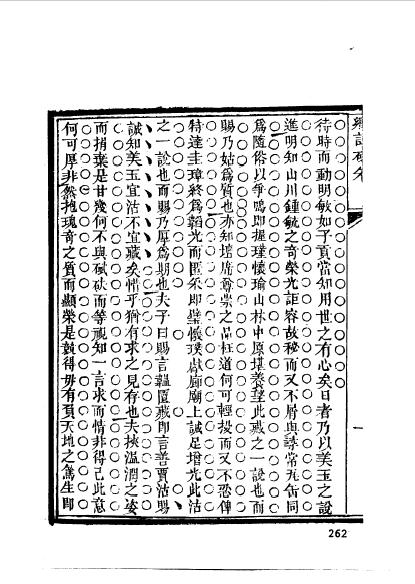 待時而動明敏如子貢當知用世之有心矣日者乃以美玉之說
進明知山川鍾毓之奇榮光詎容故秘而又不屑與尋常瓦缶同
爲隨俗以爭鳴即握瑾懷瑜山林中原堪養望此藏之一說也而
賜乃姑爲質也亦知掊席尊崇之品枉道何可輕投而又不恐俾
特達圭璋終爲韜光而匿采即璧懷璞獻廊廟上誠足增光此沽
之一說也而賜乃厚爲期也夫子曰賜言韞匱藏即言善賈沽賜
誠知美玉宜沽不宜藏矣惜乎猶有求之見存也夫挾溫潤之姿
而捐棄是甘幾何不與碔砆而等視知一言求而情非得已此意
何可厚非然抱瑰奇之質而顯榮是競得毋有負天地之篤生即
262